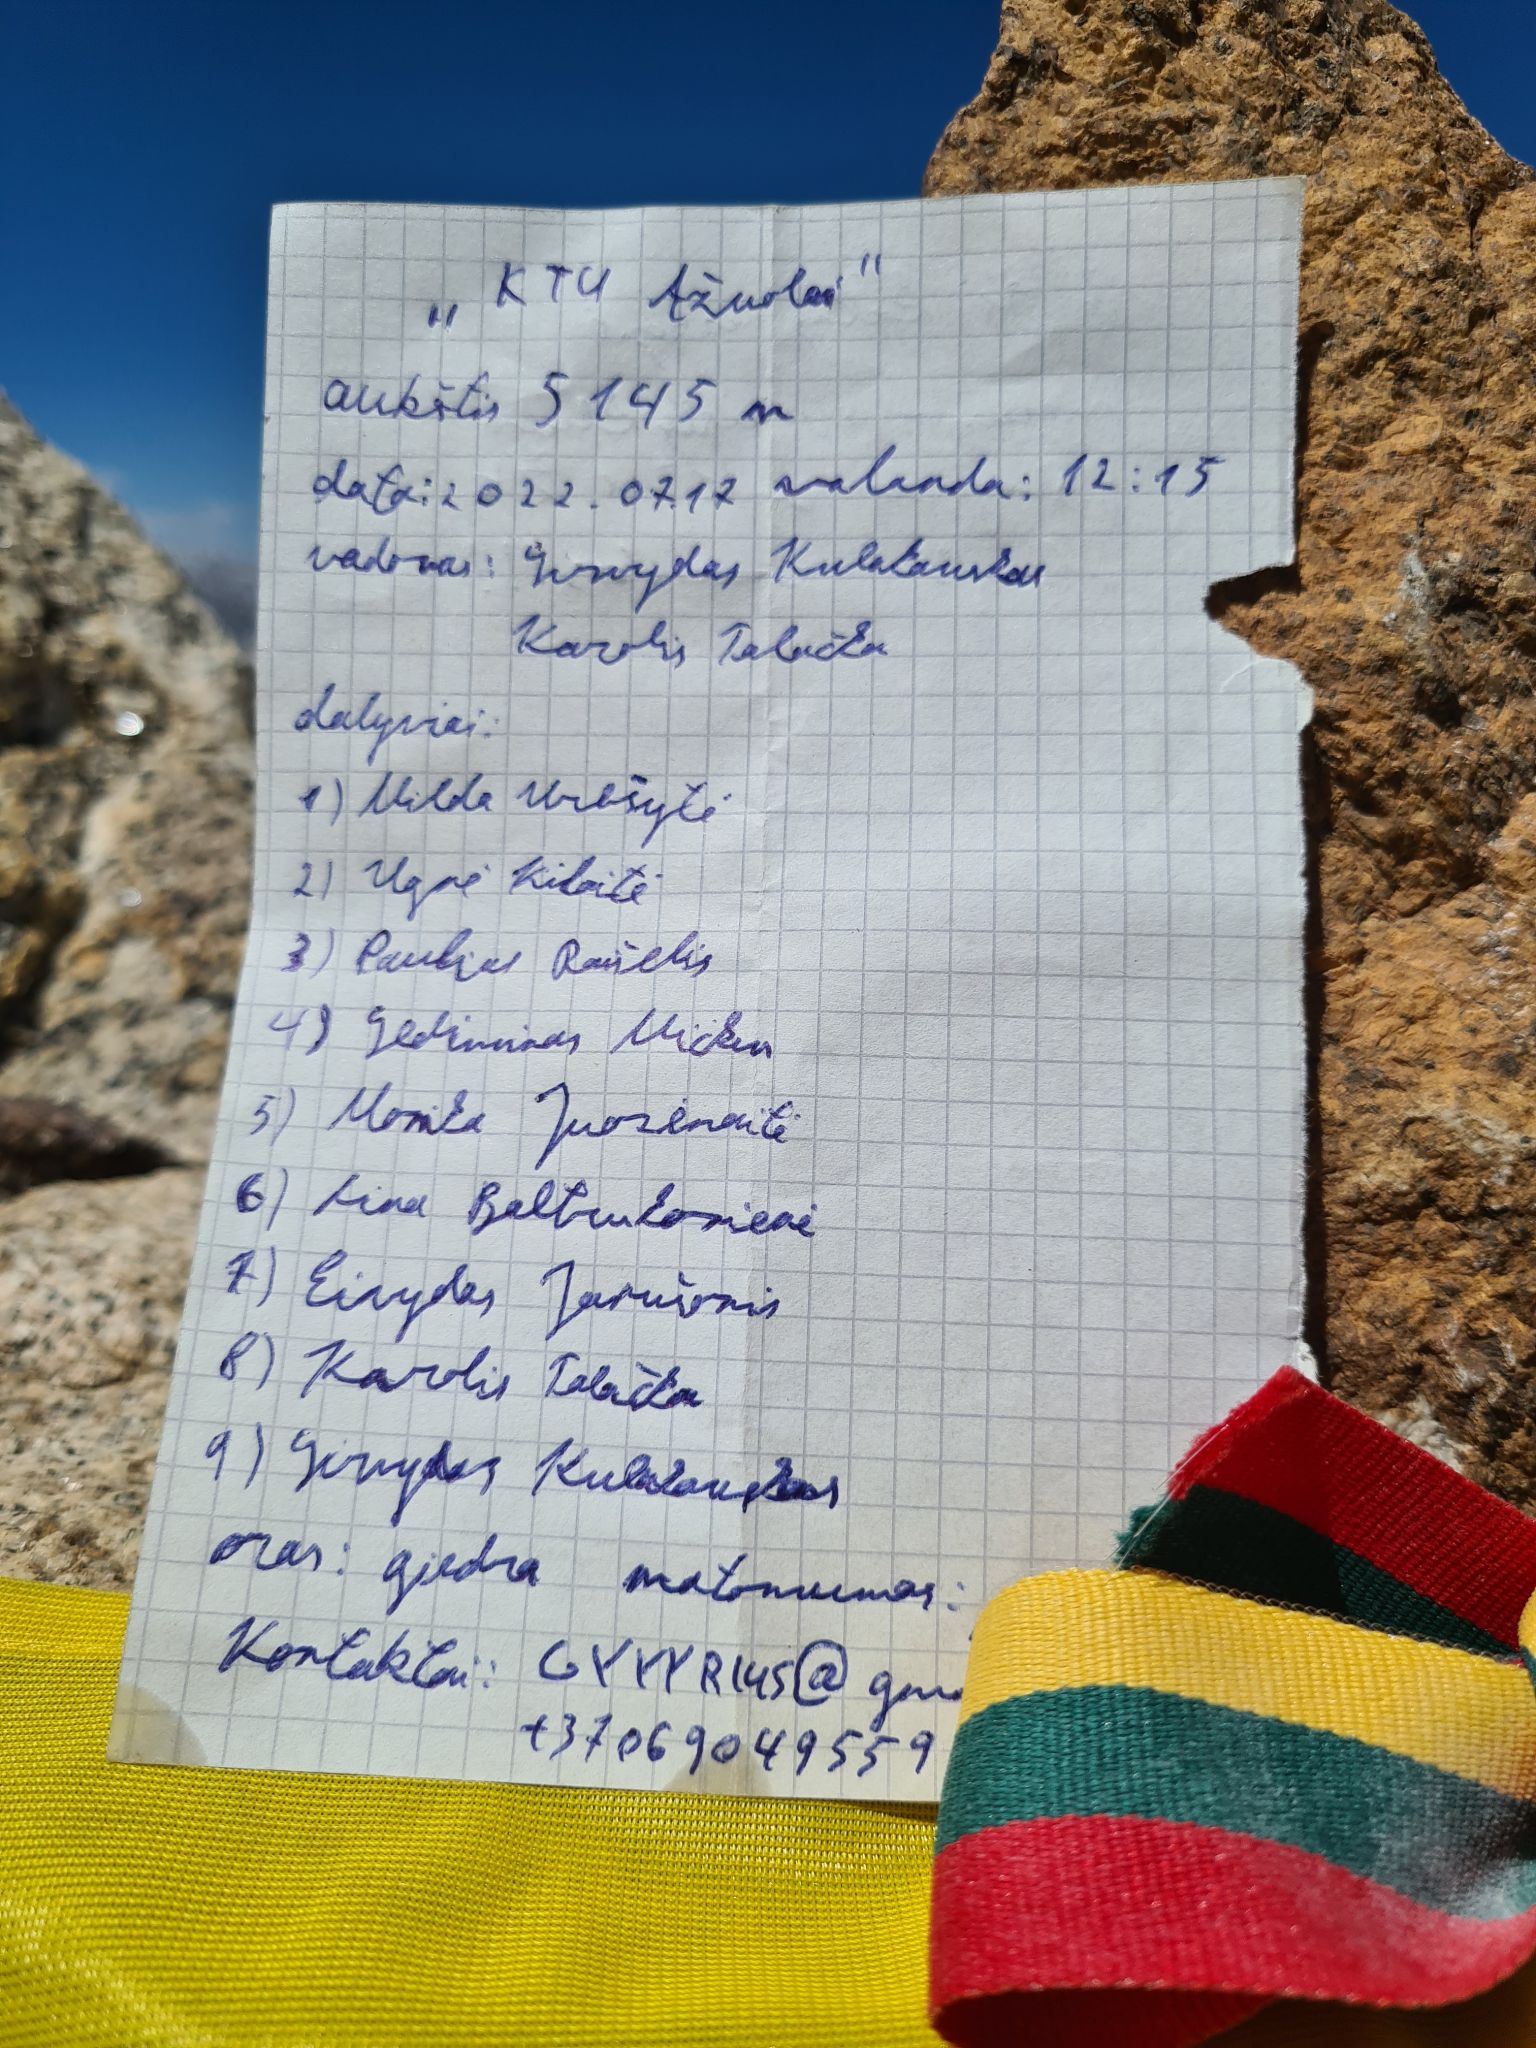 „KTU Ažuolai"
aukštis 5145 m
data: 2022.07.17 valanda: 12:15
vadovas: Girvydas Kulakauskas
Karolis Talačka
dalyviai:
1) Milda Urbšytė
2) Ugnė Kilaitė
3) Paulius Raišelis
4) Gediminas Mickus
5) Monika Juozėnaitė
6) Lina Baltrukonienė
7) Eivydas Janušonis
8) Karolis Talačka
9) Girvydas Kulakauskas
oras: giedra matomumas:
Kontaktai: GYVYRIUS@
+37069049559